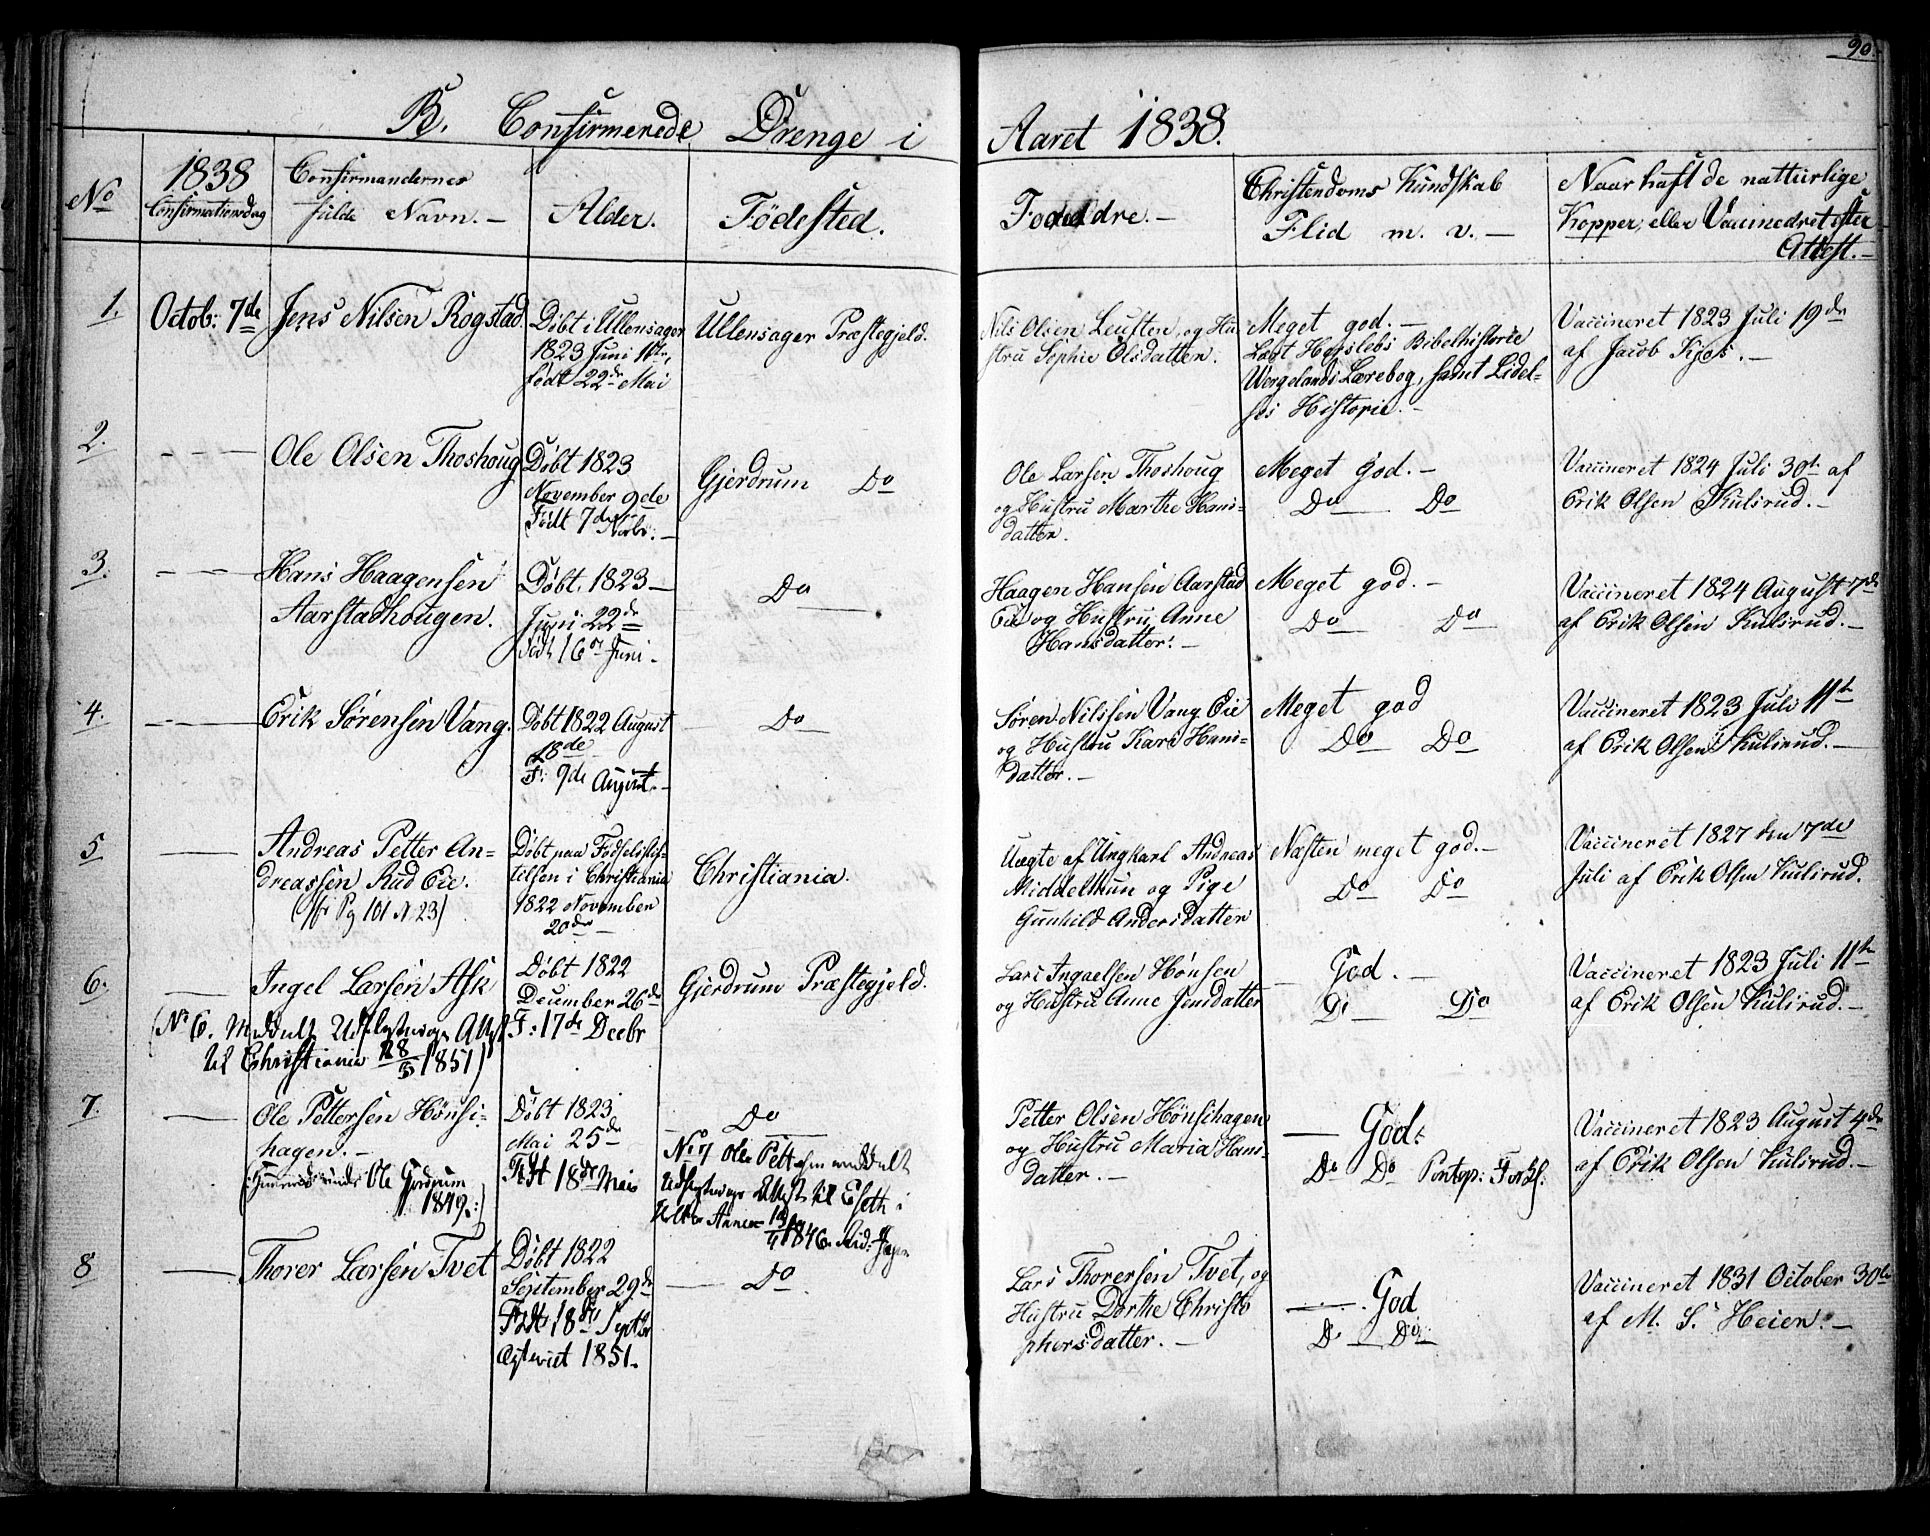 90.
B. Confirmerede Drenge i Aaret 1838.
No
1838
Confirmationsdag
Confirmandernes
fulde Navn. —
Alder.
Fødested.
Forældre. —
Christendoms Kundskab
Flid m. v. —
Naar haft de natturlige
Kopper, eller Vaccinedret efter
Attest. —
1.
Octob: 7de
Jens Nilsen Rogstad.
Døbt i Ullensager
1823 Juni
født 22de Mai
Ullensager Præstegjeld.
Nils Olsen Leusten og Hu
stru Sophie Olsdatter.
Meget god. —
Læst Herslebs Bibelhistorie
Wergelands Lærebog, samt Lidel-
ses Historie. —
Vaccineret 1823 Juli 19de
af Jacob Kjos. —
2.
Ole Olsen Thoshoug
Døbt 1823
November 9de
Født 7de Novbr. —
Gjerdrum Do
Ole Larsen Thoshoug
og Hustru Marthe Hans-
datter.
Meget God. —
Do Do
Vaccineret 1824 Juli 30te af
Erik Olsen Kulsrud. —
3.
Hans Haagensen
Aarstadhougen.
Døbt. 1823 —
Juni 22de
Født 16de Juni.
Do
Haagen Hansen Aarstad
Eie og Hustru Anne
Hansdatter. —
Meget god. —
Do Do
Vaccineret 1824 August 7de
af Erik Olsen Kulsrud. —
4.
Erik Sørensen Vang.
Døbt 1822 August
18de
F: 9de August. —
Do
Søren Nilssen Vang Eie
og Hustru Kari Hans-
datter. —
Meget god
Do Do
Vaccineret 1823 Juli 11te
af Erik Olsen Kulsrud. —
5
Andreas Petter An-
dreassen Rud Eie.
Pg 101 N 23)
Døbt paa Fødselsstif-
telsen i Christiania
1822 November
20de —
Christiania.
Uægte af Ungkarl Andreas
Middelthun og Pige
Gunhild Andersdatter
Næsten meget god. —
Do Do
Vaccineret 1827 den 7de
Juli af Erik Olsen Kulsrud.
6.
Ingel Larsen Ask
(No 6. Meddelt Udflytnings Attest
til Christiania 28/3 1851)
Døbt 1822
December 26de
F: 17de Decbr
Gjerdrum Præstegjeld.
Lars Ingaelsen Hønsen
og Hustru Anne Jensdatter
God. —
Do Do
Vaccineret 1823 Juli 11te
af Erik Olsen Kulsrud. —
7.
Ole Pettersen Hønsi-
hagen. —
Ole Gjerdrum
1849.:)
Døbt 1823
Mai 25de
Født 18de Mai
Do
No 7 Ole Pettersen meddelt
Udflytnings Attest til
1846.
Petter Olsen Hønsihagen
og Hustru Maria Hans-
datter. —
God:
Do Do Pontop: Forkl:
Vaccineret 1823 August 4de
af Erik Olsen Kulsrud. —
8
Thorer Larsen Tvet
Døbt 1822
September 29de
Født 18de Septbr
1851.
Do
Lars Thorersen Tvet, og
Hustru Dorthe Christo
phersdatter. —
God
Do Do
Vaccineret 1831 October 30te
af M. S. Heien. —